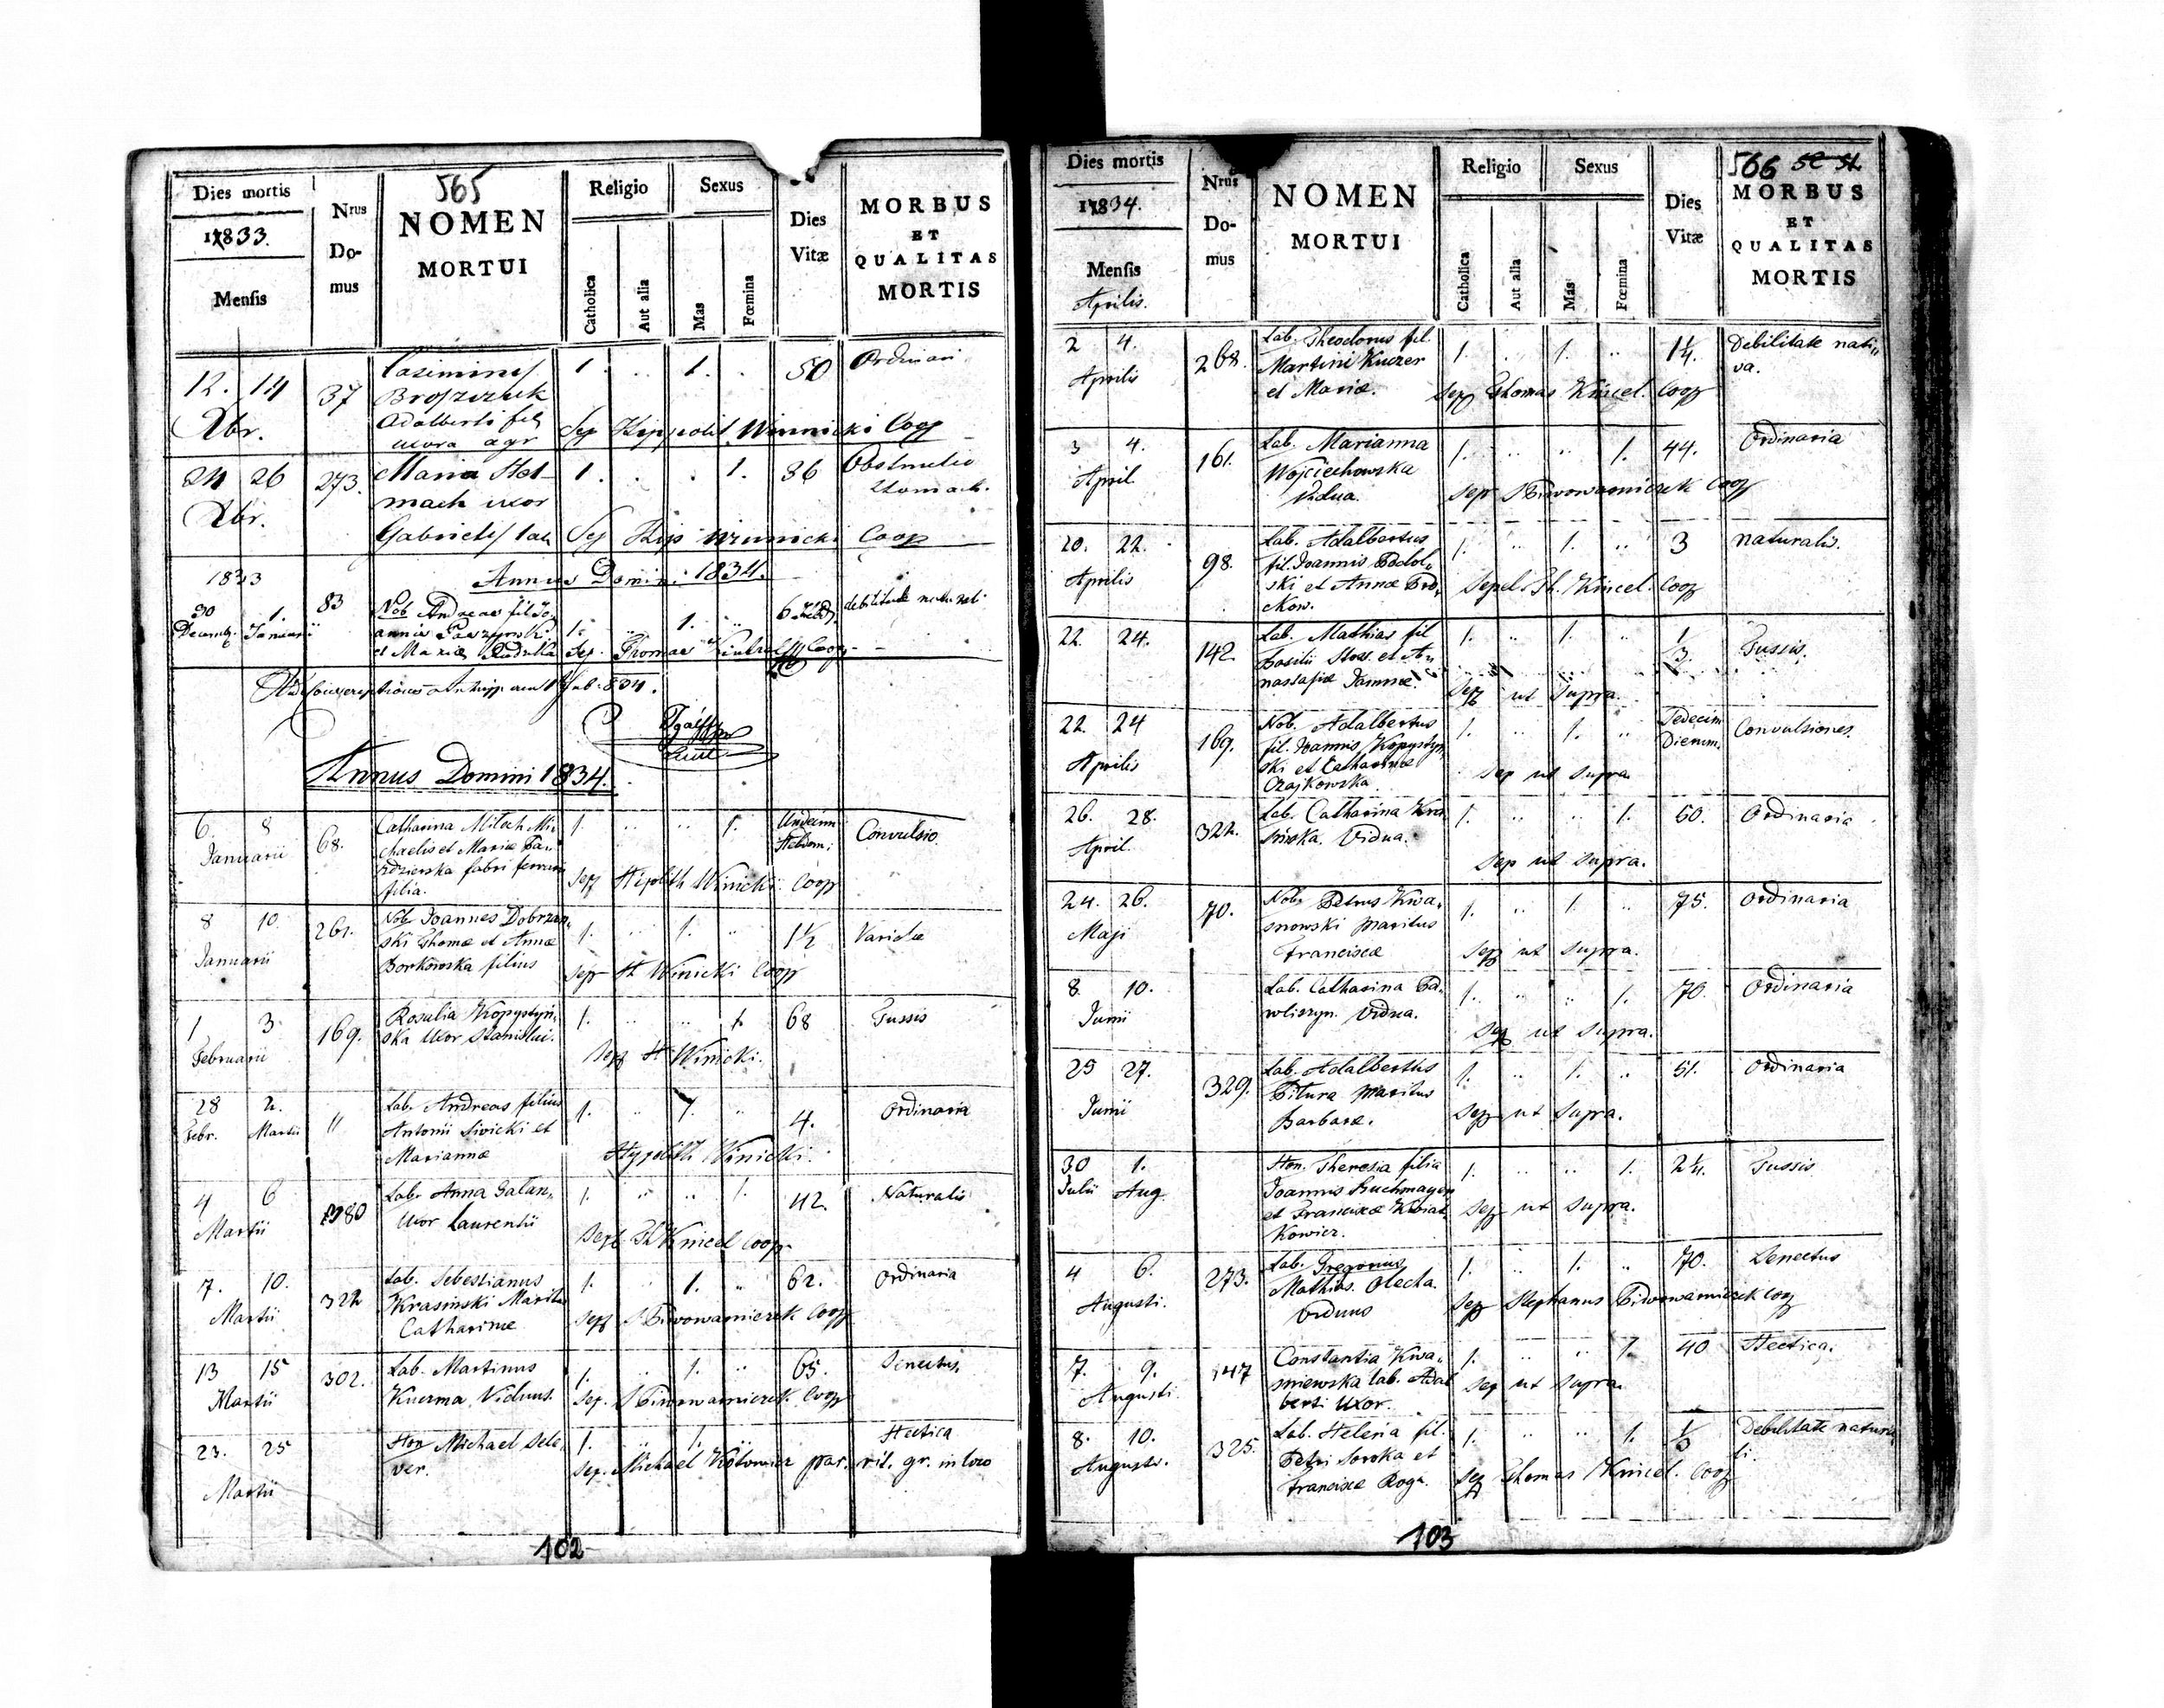 565
Dies mortis
1833.
Mensis
Nrus
Do-
mus
NOMEN
MORTUI
Religio
Catholica
Aut alia
Sexus
Mas
Fœmina
Dies
Vitæ
MORBUS
ET
QUALITAS
MORTIS
12. 14 37 Casimirus 1. .. 1. . 50 Ordinari
Xbr.
Adalberti fil
agr Sep Hippolit Winnicki Coop
24 26 273. Maria Stel- 1. . . 1. 36 Obstructio
Xbr. mach uxor Stomach.
Gabrielis lab Sep Hip Winnicki Coop
1833 Annus Domini 1834.
30 1. 83 Nob Andreas fil Jo 1. .. 1. .. debilitate naturali
Decemb. Januarii annis
et Maria Sep. Thomas Coop
Annus Domini 1834.
6. 8 68. Catharina Miloch Mi- 1. .. .. 1. Undecim Convulsio
Januarii chaelis et Mariæ Pa- Hebdom:
dzierska fabri ferrarii
filia. Sep Hipolith Winicki Coop
8 10. 261. Nob Joannes Dobrzan- 1. .. 1. .. 1½ Variolæ
Januarii ski Thomæ et Annæ
Borkowska filius Sep H Winicki Coop
1 3. 169. Rosalia Kopystyn- 1. .. .. 1. 68 Tussis
Februarii ska Uxor Stanislai.
Sep H Winicki.
28 2. " Lab. Andreas filius 1. .. 1. .. 4. Ordinaria
Febr. Martii Antonii Sivicki et
Mariannæ Hypolith Winicki.
4 6 380 Lab. Anna Galan- 1. .. .. 1. 42. Naturalis
Martii Uxor Laurentii
Sep Th Knicel Coop
7. 10. 322 Lab. Sebestianus 1. . 1. .. 62. Ordinaria
Martii Krasinski Marit
Catharinæ Sep S Piwowarniczek Coop
13 15 302. Lab. Martinus 1. .. 1. .. 65. Senectus,
Martii Kuzma Viduus. Sep. S Piwowarniczek Coop
23. 25 Hon Michael Sele- 1. .. 1. .. Hectica
Martii ver. Sep. Michael Kotowicz par. rit. gr. in loco
102
566
Dies mortis
1834.
Mensis
Aprilis.
Nrus
Do-
mus
NOMEN
MORTUI
Religio
Catholica
Aut alia
Sexus
Mas
Fœmina
Dies
Vitæ
MORBUS
ET
QUALITAS
MORTIS
2 4. 268. Lab. Theodorus fil. 1. .. 1. .. 1¼. Debilitate nati-
Aprilis Martini Kuczer va.
et Mariæ. Sep Thomas Knicel. Coop
3 4. 161. Lab. Marianna 1. .. .. 1. 44. Ordinaria
April Wojciechowska
Vidua. Sep S Piwowarniczek Coop
20. 22. 98. Lab. Adalbertus 1. .. 1. .. 3 Naturalis.
Aprilis fil. Joannis Podol-
ski et Annæ Pro-
ckow. Sepel. Th. Knicel. Coop
22. 24. 142. Lab. Mathias fil 1. .. 1. .. 1/3. Tussis.
Basilii Stow. et A-
nastasiæ Sep ut Supra.
22. 24 169. Nob. Adalbertus 1. .. 1. .. Sedecim Convulsiones.
Aprilis fil. Joannis Kopystyn- Dierum.
ski et Catharinæ
Czajkowska. Sep ut Supra
26. 28. 322. Lab. Catharina Kra- 1. .. .. 1. 60. Ordinaria
April. sinska. Vidua.
Sep ut Supra.
24. 26. 70. Nob. Petrus Kwa- 1. .. 1. .. 75. Ordinaria
Maji snowski Maritus
Franciscæ Sep ut Supra.
8. 10. Lab. Catharina Pa- 1. .. .. 1. 70. Ordinaria
Junii wliszyn. Vidua.
Sep ut Supra.
25 27. 329. Lab. Adalbertus 1. .. 1. .. 51. Ordinaria
Junii Pitura Maritus
Barbaræ. Sep ut Supra.
30 1. Hon. Theresia filia 1. .. .. 1. 2¼. Tussis
Julii Aug. Joannis Buchmayer
et Franciscæ Kwiat-
kowicz. Sep ut Supra.
4 6. 273. Lab. Gregorius 1. .. 1. .. 70. Senectus
Augusti. Mathias. Olecha.
Viduus Sep Stephanus Piwowarniczek Coop
7. 9. 147 Constantia Kwa- 1. .. .. 1. 40 Hectica.
Augusti. sniewska lab. Adal
berti Uxor. Sep ut Supra
8. 10. 325. Lab. Helena fil. 1. .. .. 1. 1/3 Debilitate natura-
Augusti. Petri Soroka et li.
Franciscæ Rog. Sep Thomas Knicel. Coop
103